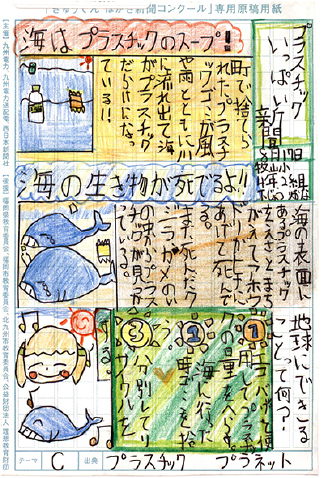 「きゅうくん はがき新聞コンクール」専用原稿用紙
プラスチック
いっぱい新聞
8月17日
海はプラスチックのスープ!!
町で捨てら
れたプラスチ
ックゴミが風
や雨とともに川
に流れ出て海
がプラスチック
だらけになっ
ている!!
海の生き物が死でるよ!!
海の表面に
あるプラスチック
をえさとまち
がえてアホウ
ドリ
あげて死んで
る。
また、死んだク
ジラやカメのい
の中からプラス
チックゴミが見つか
地球にできる
ことって何?
①
②
海に行った
ら
③
分別してリ
サイクル
テーマ
C
出典
プラスチック プラネット
【主催】九州電力、九州電力送配電、西日本新聞社
【後援】福岡県教育委員会、福岡市教育委員会、北九州市教育委員会、公益財団法人 理想教育財団